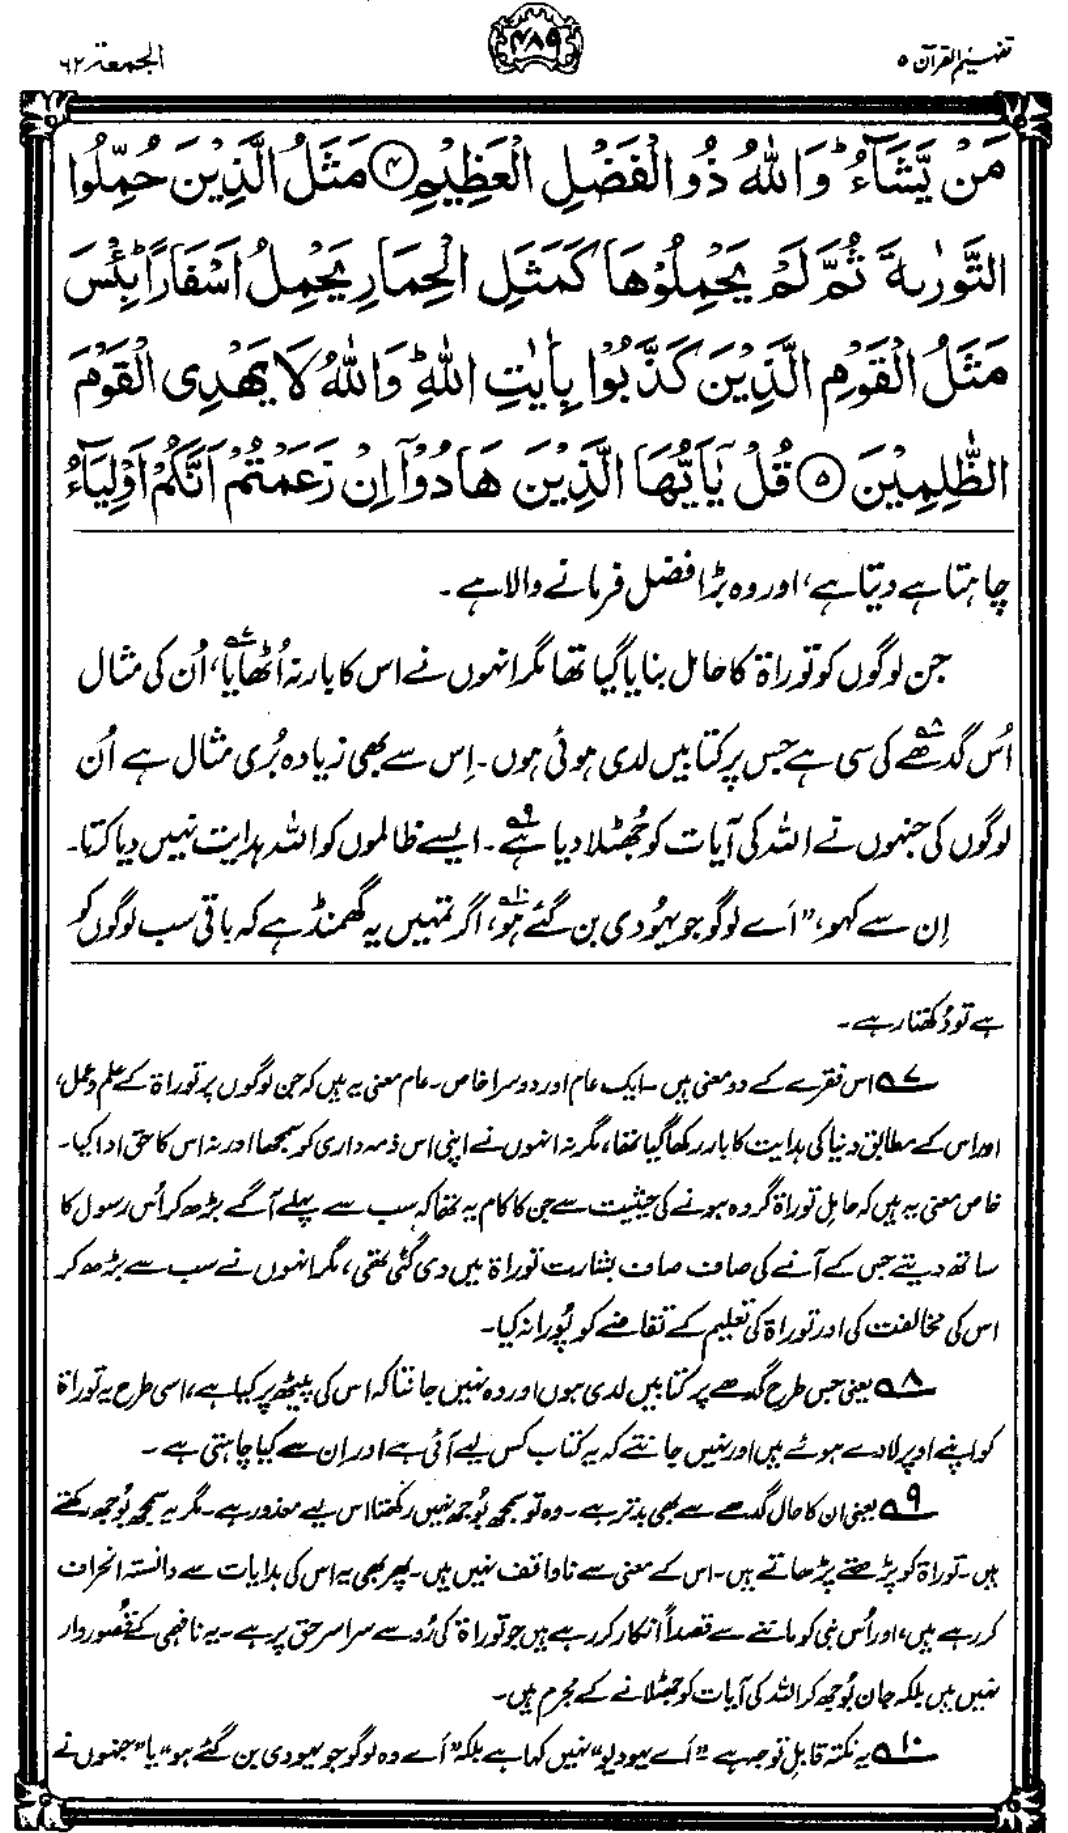 تفہیم القرآن ۵
۴۸۹
الجمعۃ ۶۲
مَنْ يَّشَآءُ ؕ وَاللّٰهُ ذُو الْفَضْلِ الْعَظِيْمِ ۴ مَثَلُ الَّذِيْنَ حُمِّلُوا
التَّوْرٰىةَ ثُمَّ لَمْ يَحْمِلُوْهَا كَمَثَلِ الْحِمَارِ يَحْمِلُ اَسْفَارًا ؕ بِئْسَ
مَثَلُ الْقَوْمِ الَّذِيْنَ كَذَّبُوْا بِاٰيٰتِ اللّٰهِ ؕ وَاللّٰهُ لَا يَهْدِى الْقَوْمَ
الظّٰلِمِيْنَ ۵ قُلْ يٰۤاَيُّهَا الَّذِيْنَ هَادُوْۤا اِنْ زَعَمْتُمْ اَنَّكُمْ اَوْلِيَآءُ
چاہتا ہے دیتا ہے، اور وہ بڑا فضل فرمانے والا ہے۔
جن لوگوں کو توراۃ کا حامل بنایا گیا تھا مگر انہوں نے اس کا بار نہ اُٹھایا۷، اُن کی مثال
اُس گدھے۸ کی سی ہے جس پر کتابیں لدی ہوئی ہوں۔ اِس سے بھی زیادہ بُری مثال ہے اُن
لوگوں کی جنہوں نے اللہ کی آیات کو جُھٹلا دیا ہے۹۔ ایسے ظالموں کو اللہ ہدایت نہیں دیا کرتا۔
اِن سے کہو، ”اَے لوگو جو یہُودی بن گئے ہو۱۰، اگر تمہیں یہ گھمنڈ ہے کہ باقی سب لوگوں کو
ہے تو دُکھتا رہے۔
۷ اس فقرے کے دو معنی ہیں۔ ایک عام اور دوسرا خاص۔ عام معنی یہ ہیں کہ جن لوگوں پر توراۃ کے علم و عمل،
اور اس کے مطابق دنیا کی ہدایت کا بار رکھا گیا تھا، مگر نہ انہوں نے اپنی اس ذمہ داری کو سمجھا اور نہ اس کا حق ادا کیا۔
خاص معنی یہ ہیں کہ حاملِ توراۃ گروہ ہونے کی حیثیت سے جن کا کام یہ تھا کہ سب سے پہلے آگے بڑھ کر اُس رسول کا
ساتھ دیتے جس کے آنے کی صاف صاف بشارت توراۃ میں دی گئی تھی، مگر انہوں نے سب سے بڑھ کر
اس کی مخالفت کی اور توراۃ کی تعلیم کے تقاضے کو پُورا نہ کیا۔
۸ یعنی جس طرح گدھے پر کتابیں لدی ہوں اور وہ نہیں جانتا کہ اس کی پیٹھ پر کیا ہے، اسی طرح یہ توراۃ
کو اپنے اوپر لادے ہوئے ہیں اور نہیں جانتے کہ یہ کتاب کس لیے آئی ہے اور اِن سے کیا چاہتی ہے۔
۹ یعنی ان کا حال گدھے سے بھی بدتر ہے۔ وہ تو سمجھ بُوجھ نہیں رکھتا اس لیے معذور ہے۔ مگر یہ سمجھ بُوجھ رکھتے
ہیں۔ توراۃ کو پڑھتے پڑھاتے ہیں۔ اس کے معنی سے ناواقف نہیں ہیں۔ پھر بھی یہ اس کی ہدایات سے دانستہ انحراف
کر رہے ہیں، اور اُس نبی کو ماننے سے قصداً انکار کر رہے ہیں جو توراۃ کی رُو سے سراسر حق پر ہے۔ یہ نافہمی کے قُصوروار
نہیں ہیں بلکہ جان بُوجھ کر اللہ کی آیات کو جھٹلانے کے مجرم ہیں۔
۱۰ یہ نکتہ قابلِ توجہ ہے ”اَے یہودیو“ نہیں کہا ہے بلکہ ”اَے وہ لوگو جو یہودی بن گئے ہو“ یا ”جنہوں نے